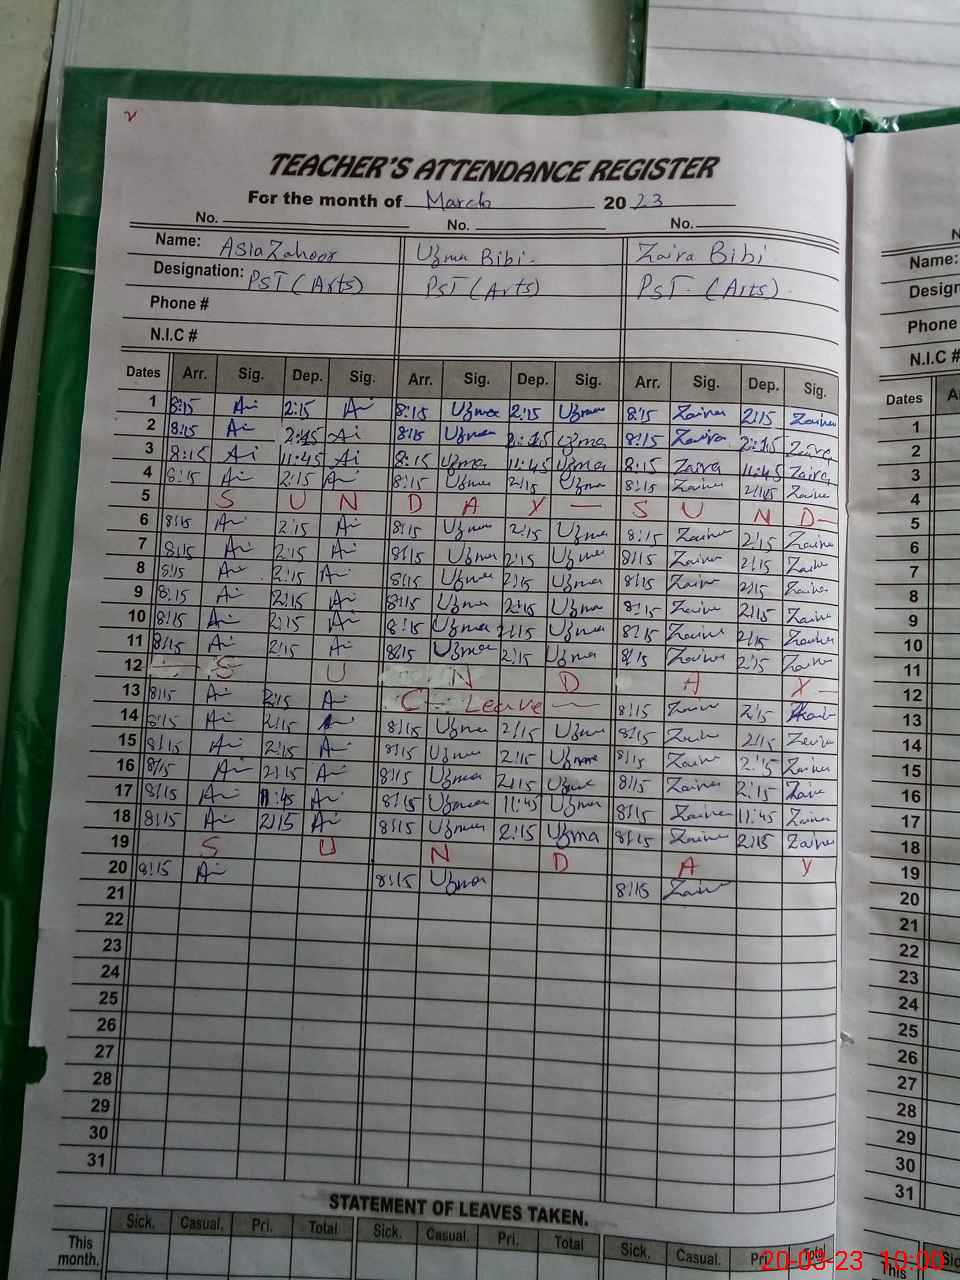 TEACHER'S ATTENDANCE REGISTER
For the month of March 2023
No. No. No.
Name: Asia Zahoor Uzma Bibi Zaira Bibi
Designation: PST (Arts) PST (Arts) PST (Arts)
Phone #
N.I.C #
Dates Arr. Sig. Dep. Sig. Arr. Sig. Dep. Sig. Arr. Sig. Dep. Sig.
1 8:15 2:15 8:15 Uzma 2:15 Uzma 8:15 Zaira 2:15 Zaira
2 8:15 8:15 Uzma Uzma 8:15 Zaira Zaira
3 8:15 11:45 8:15 Uzma 11:45 Uzma 8:15 Zaira 11:45 Zaira
4 8:15 2:15 8:15 Uzma 2:15 Uzma 8:15 Zaira 2:15 Zaira
5 S U N D A Y — S U N D —
6 8:15 2:15 8:15 Uzma 2:15 Uzma 8:15 Zaira 2:15 Zaira
7 8:15 2:15 8:15 Uzma 2:15 Uzma 8:15 Zaira 2:15 Zaira
8 8:15 2:15 8:15 Uzma 2:15 Uzma 8:15 Zaira 2:15 Zaira
9 8:15 2:15 8:15 Uzma 2:15 Uzma 8:15 Zaira 2:15 Zaira
10 8:15 2:15 8:15 Uzma 2:15 Uzma 8:15 Zaira 2:15 Zaira
11 8:15 2:15 8:15 Uzma 2:15 Uzma 8:15 Zaira 2:15 Zaira
12 S U N D A Y
13 8:15 2:15 C - Leave — 8:15 Zaira 2:15
14 8:15 2:15 8:15 Uzma 2:15 Uzma 8:15 Zaira 2:15 Zaira
15 8:15 2:15 8:15 Uzma 2:15 Uzma 8:15 Zaira 2:15 Zaira
16 8:15 2:15 8:15 Uzma 2:15 Uzma 8:15 Zaira 2:15 Zaira
17 8:15 11:45 8:15 Uzma 11:45 Uzma 8:15 Zaira 11:45 Zaira
18 8:15 2:15 8:15 Uzma 2:15 Uzma 8:15 Zaira 2:15 Zaira
19 S U N D A Y
20 8:15 8:15 Uzma 8:15 Zaira
21
22
23
24
25
26
27
28
29
30
31
STATEMENT OF LEAVES TAKEN.
Sick. Casual. Pri. Total Sick. Casual. Pri. Total Sick. Casual. Pri. Total
This month.
Name:
Phone
N.I.C #
Dates
1
2
3
4
5
6
7
8
9
10
11
12
13
14
15
16
17
18
19
20
21
22
23
24
25
26
27
28
29
30
31
This
20-03-23 10:00